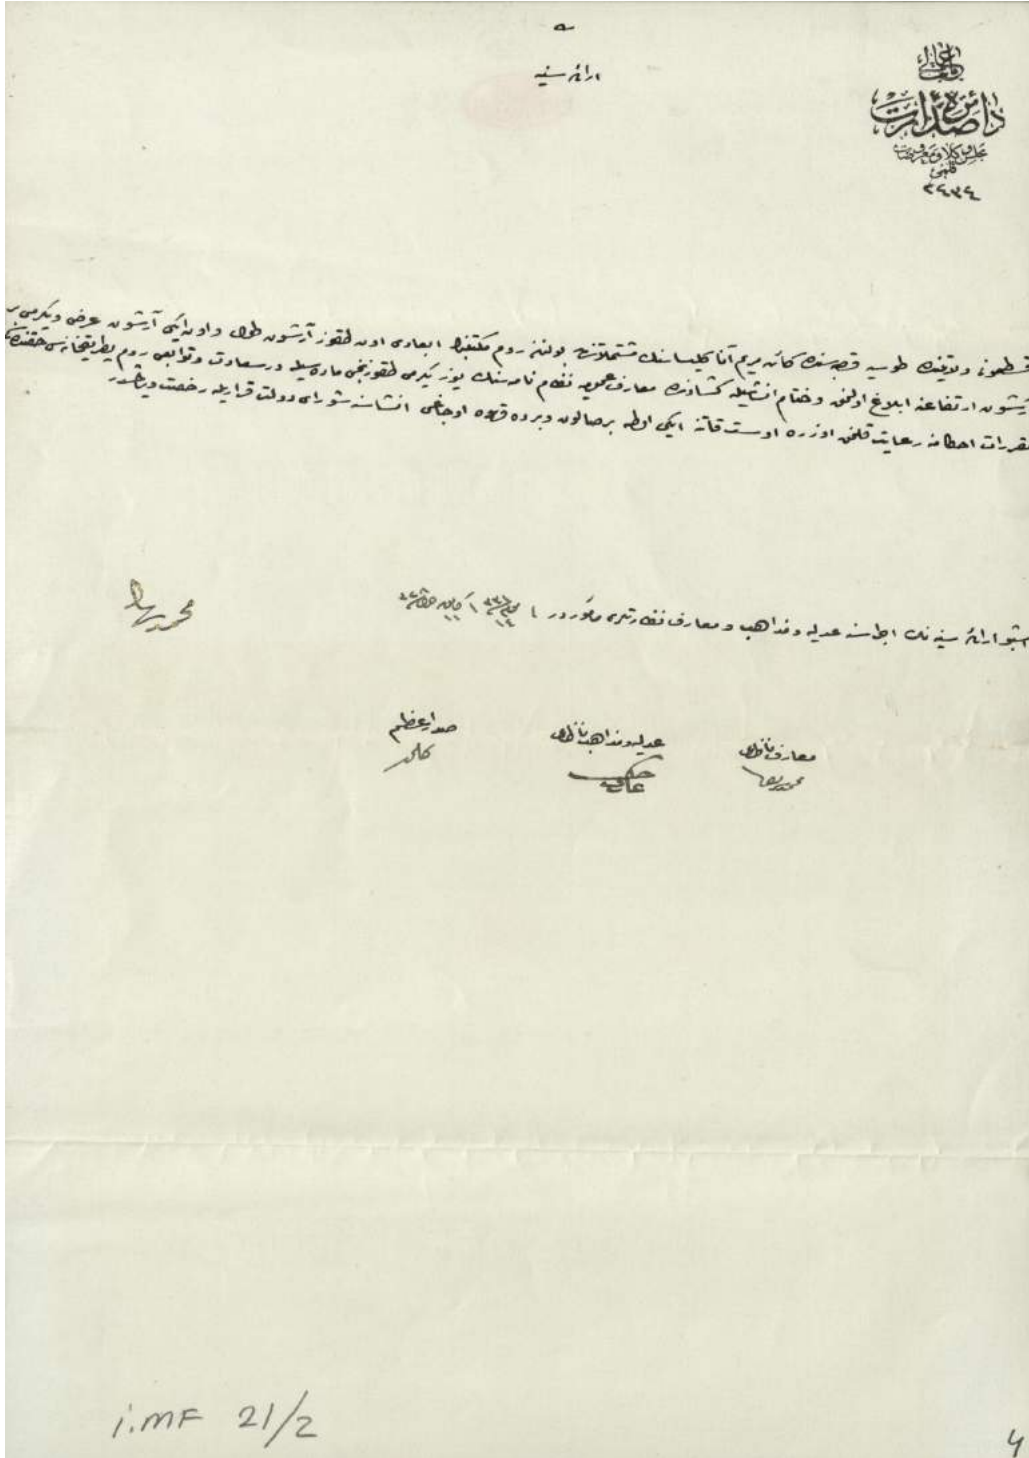 باب عالی
دائرهٔ صدارت
مجلس وکلا و معروضات
قلمی
٣٤٣٤
ارادهٔ سنیه
قسطمونی ولایتنده طوسیه قصبه‌سنده کائن مریم آنا کلیساسنك مشتملاتندن بولنان روم مکتبنك ابعادی اون طقوز آرشون طول و اون ایکی آرشون عرض ویکرمی بر
آرشون ارتفاعنه ابلاغ اولنمق و ختام انشاسیله کشادنده معارف عمومیه نظام نامه سنك یوز یکرمی طقوزنجی ماده سیله درسعادت وتوابعی روم پطریقخانه سی حقنده‌کی
مقررات احکامنه رعایت قلنمق اوزره اوست قاتنه ایکی اوطه برصالون وبرده قهوه اوجاغی انشاسنه شورای دولت قراریله رخصت ویرلمشدر
اشبو ارادهٔ سنیه نك اجراسنه عدلیه ومذاهب و معارف نظارتلری مأموردر
صدر اعظم
عدلیه ومذاهب ناظری
معارف ناظری
i.MF 21/2
4